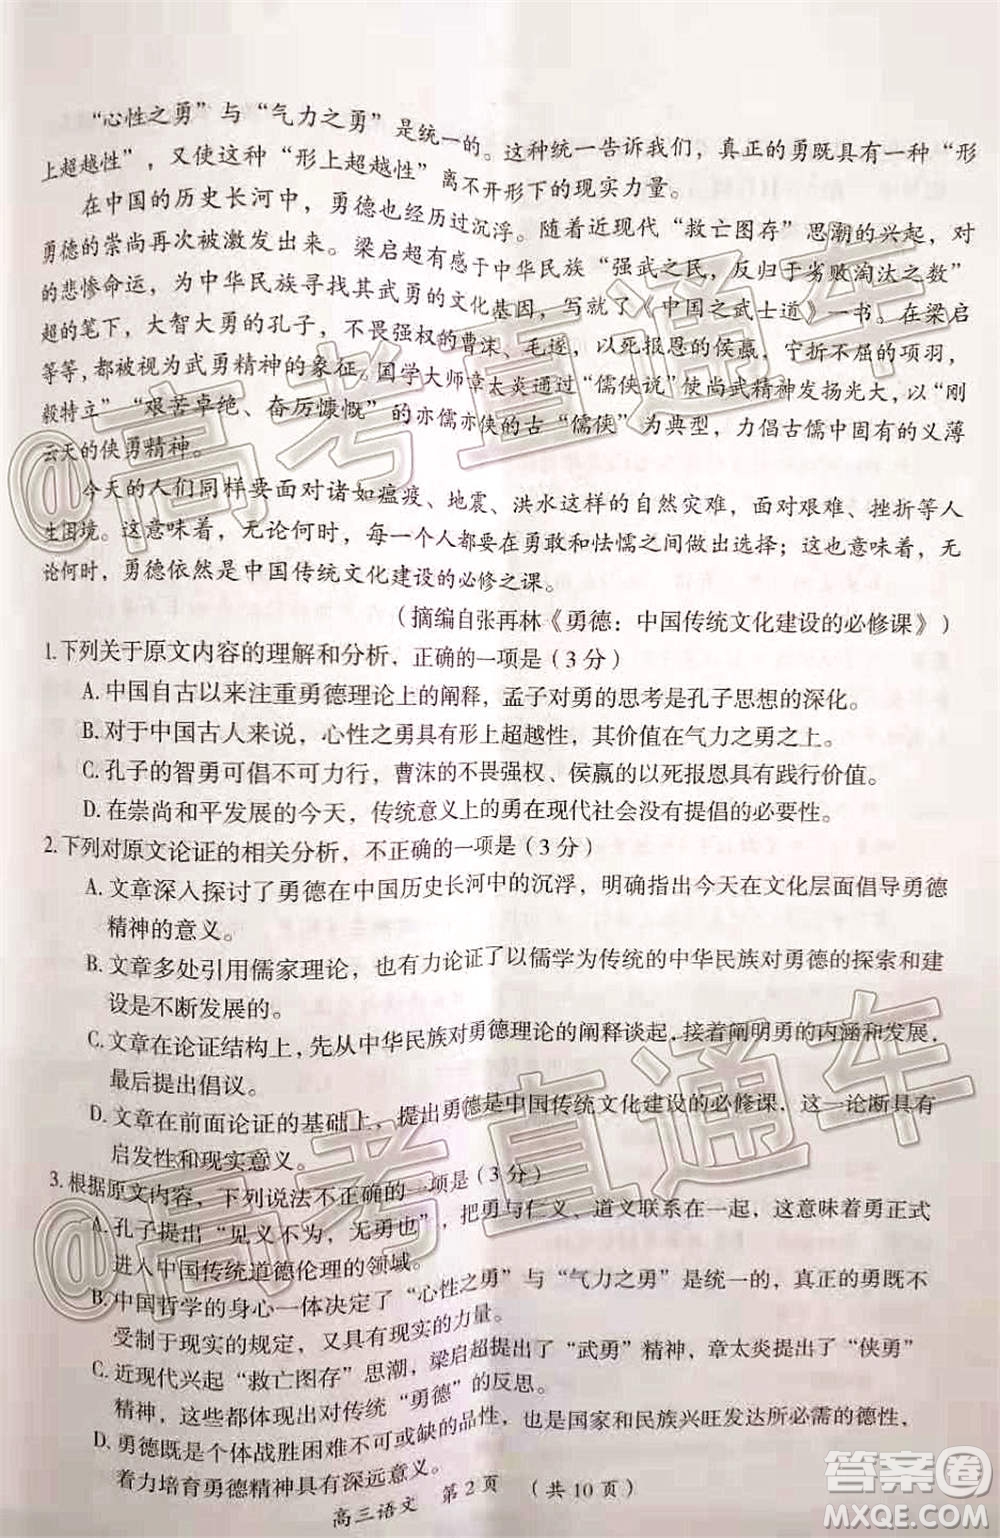 “心性之勇”与“气力之勇”是统一的。这种统一告诉我们，真正的勇既具有一种“形
上超越性”，又使这种“形上超越性”离不开形下的现实力量。
在中国的历史长河中，勇德也经历过沉浮。随着近现代“救亡图存”思潮的兴起，对
勇德的崇尚再次被激发出来。梁启超有感于中华民族“强武之民，反变于劣败淘汰之数”
的悲惨命运，为中华民族寻找其武勇的文化基因，写就了《中国之武士道》一书。在梁启
超的笔下，大智大勇的孔子，不畏强权的曹沫、毛遂，以死报恩的侯嬴，宁折不屈的项羽，
等等，都被视为武勇精神的象征。国学大师章太炎通过“儒侠说”使尚武精神发扬光大，以“刚
毅特立”“艰苦卓绝、奋厉慷慨”的亦儒亦侠的古“儒侠”为典型，力倡古儒中固有的义薄
云天的侠勇精神。
今天的人们同样要面对诸如瘟疫、地震、洪水这样的自然灾难，要面对艰难、挫折等人
生困境。这意味着，无论何时，我们每个人都要在勇敢和怯懦之间做出选择；这也意味着，无
论何时，勇德依然是中国传统文化建设的必修之课。
（摘编自张再林《勇德：中国传统文化建设的必修课》）
1.下列关于原文内容的理解和分析，正确的一项是（3分）
A.中国自古以来注重勇德理论上的阐释，孟子对勇的思考是孔子思想的深化。
B.对于中国古人来说，心性之勇具有形上超越性，其价值在气力之勇之上。
C.孔子的智勇可倡不可力行，曹沫的不畏强权、侯嬴的以死报恩具有践行价值。
D.在崇尚和平发展的今天，传统意义上的勇在现代社会没有提倡的必要性。
2.下列对原文论证的相关分析，不正确的一项是（3分）
A.文章深入探讨了勇德在中国历史长河中的沉浮，明确指出今天在文化层面倡导勇德
精神的意义。
B.文章多处引用儒家理论，也有力论证了以儒学为传统的中华民族对勇德的探索和建
设是不断发展的。
C.文章在论证结构上，先从中华民族对勇德理论的阐释谈起，接着阐明勇的内涵和发展，
最后提出倡议。
D.文章在前面论证的基础上，提出勇德是中国传统文化建设的必修课，这一论断具有
启发性和现实意义。
3.根据原文内容，下列说法不正确的一项是（3分）
A.孔子提出“见义不为，无勇也”，把勇与仁义、道义联系在一起，这意味着勇正式
进入中国传统道德伦理的领域。
B.中国哲学的身心一体决定了“心性之勇”与“气力之勇”是统一的，真正的勇既不
受制于现实的规定，又具有现实的力量。
C.近现代兴起“救亡图存”思潮，梁启超提出了“武勇”精神，章太炎提出了“侠勇”
精神，这些都体现出对传统“勇德”的反思。
D.勇德既是个体战胜困难不可或缺的品性，也是国家和民族兴旺发达所必需的德性，
着力培育勇德精神具有深远意义。
高三语文　第2页　（共10页）
@高考直通车
@高考直通车
答案圈
MXQE.COM